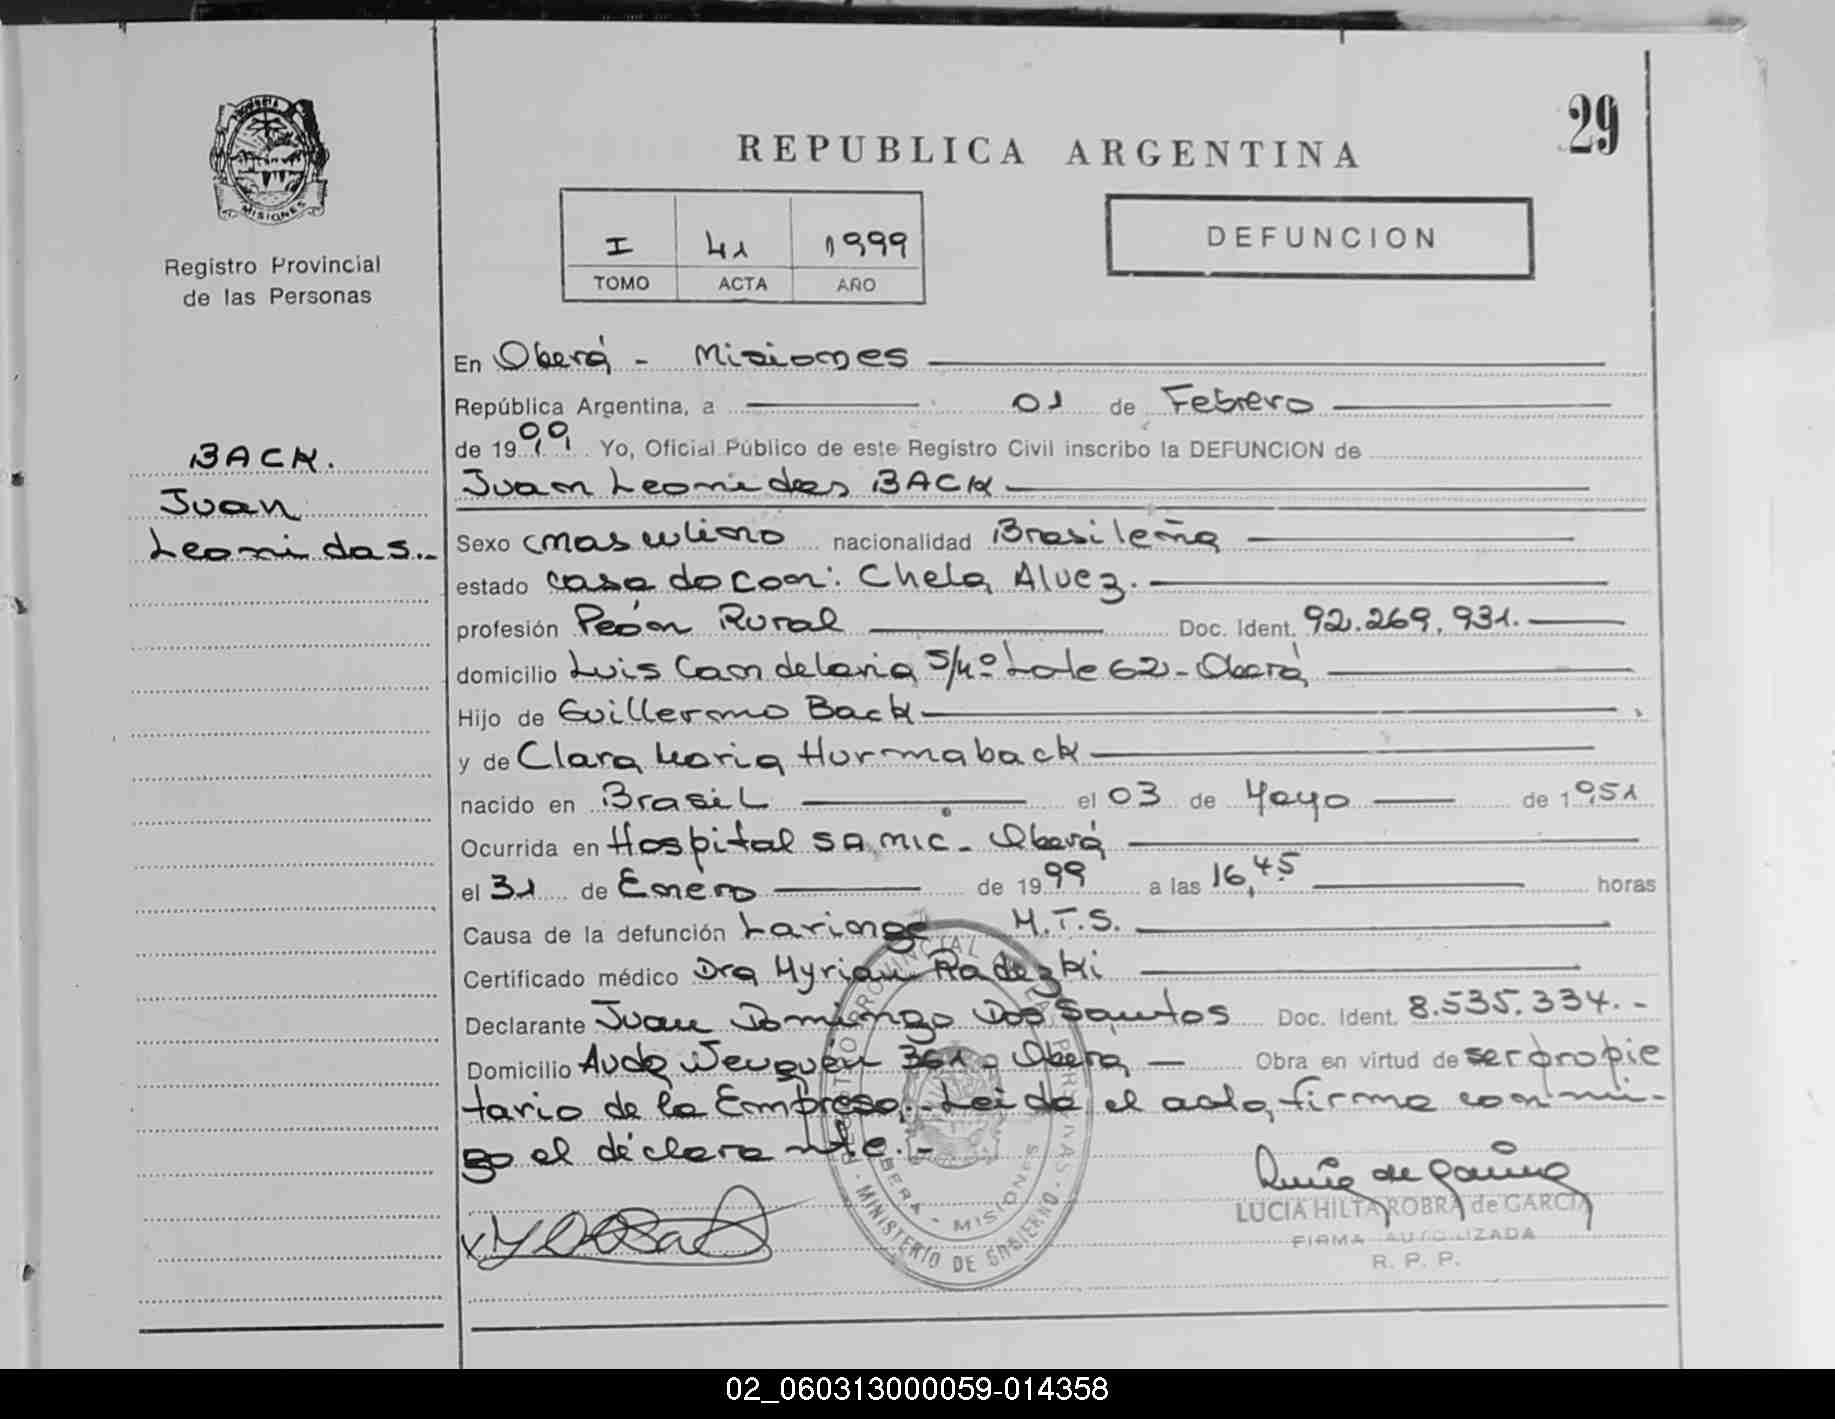 29
REPUBLICA ARGENTINA
MISIONES
Registro Provincial
de las Personas
I 41 1999
TOMO ACTA AÑO
DEFUNCION
BACK.
Juan
Leonidas.-
En Oberá - Misiones
República Argentina, a 01 de Febrero
de 1999. Yo, Oficial Público de este Registro Civil inscribo la DEFUNCION de
Juan Leonidas BACK
Sexo masculino nacionalidad Brasileña
estado casado con: Chela Alvez.
profesión Peón Rural Doc. Ident. 92.269.931.
domicilio Luis Candelaria S/Nº Lote 62 - Oberá
Hijo de Guillermo Back
y de Clara Maria Hurmaback
nacido en Brasil el 03 de Mayo de 1951
Ocurrida en Hospital SAMIC - Oberá
el 31 de Enero de 1999 a las 16,45 horas
Causa de la defunción Laringe M.T.S.
Certificado médico Dra Myriam Radezki
Declarante Juan Domingo Dos Santos Doc. Ident. 8.535.334.-
Domicilio Avda Neuquén 361 - Oberá Obra en virtud de ser propie
tario de la Empresa.- Leida el acta, firma conmi-
go el declarante.-
MINISTERIO DE GOBIERNO
MISIONES
LUCIA HILTA ROBRA de GARCIA
FIRMA AUTORIZADA
R. P. P.
02_060313000059-014358